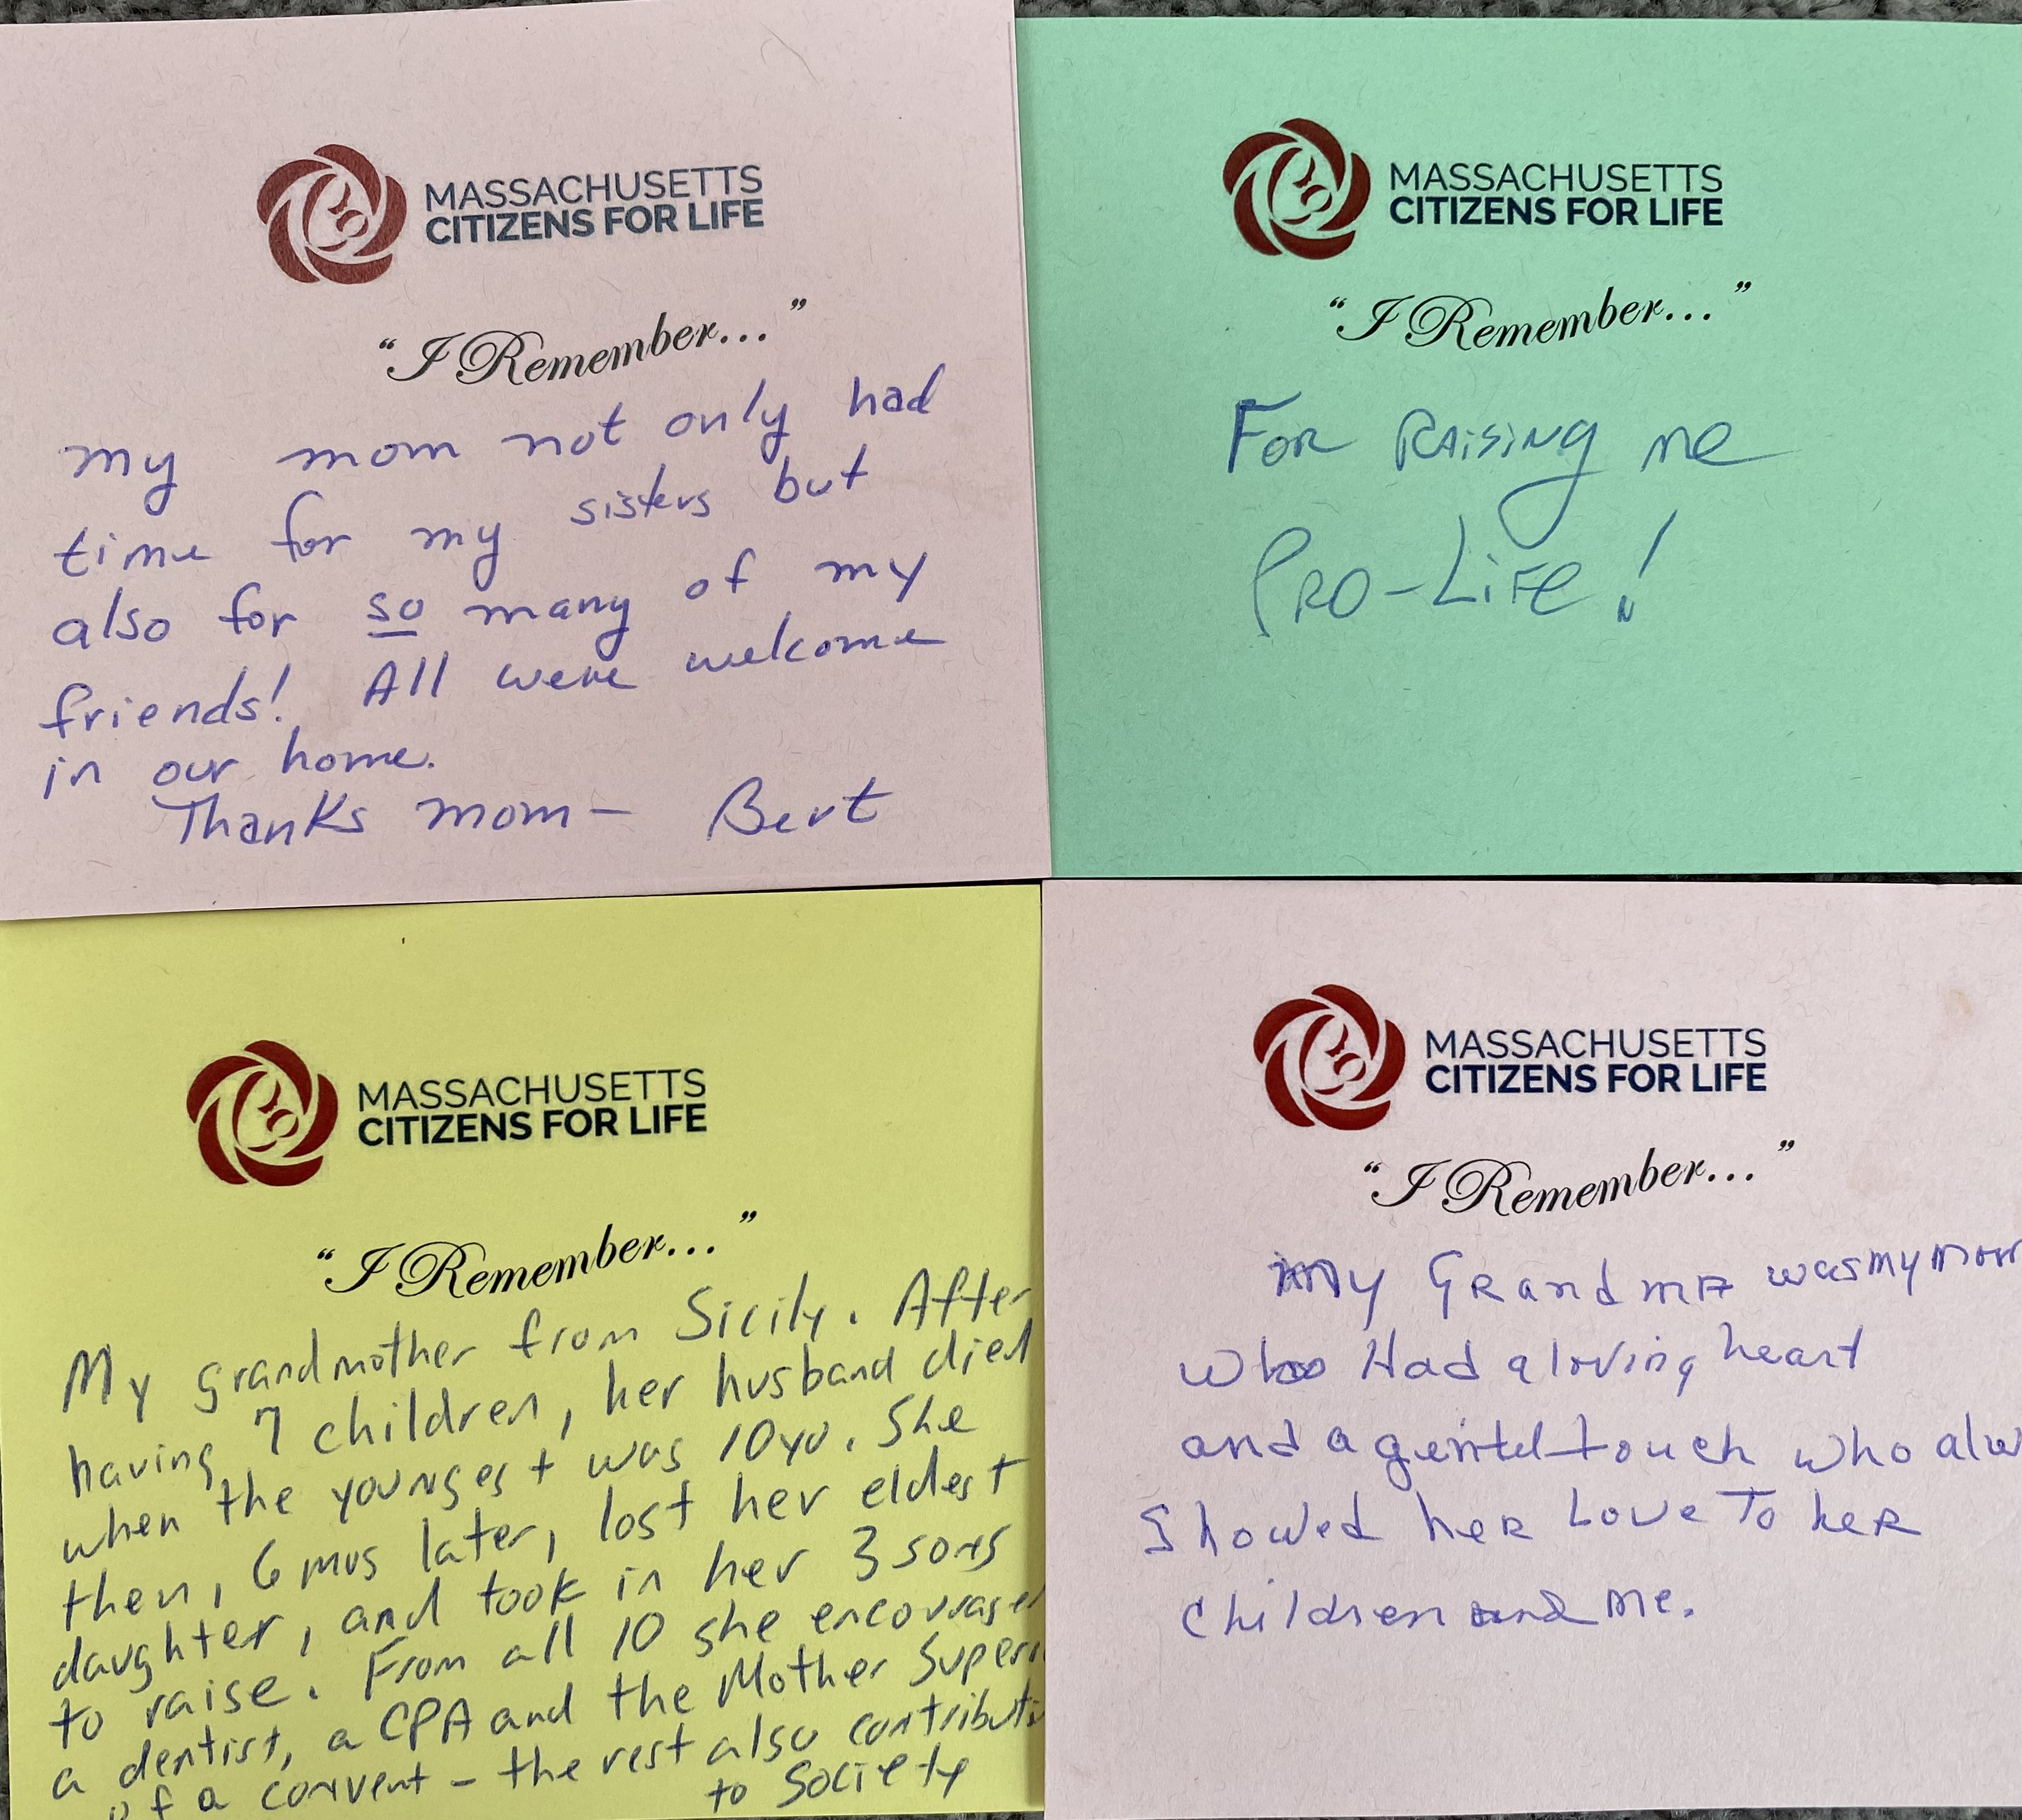 MASSACHUSETTS
CITIZENS FOR LIFE
"I Remember..."
my mom not only had
time for my sisters but
also for so many of my
friends! All were welcome
in our home.
Thanks mom— Bert
MASSACHUSETTS
CITIZENS FOR LIFE
"I Remember..."
For Raising me
Pro-Life!
MASSACHUSETTS
CITIZENS FOR LIFE
"I Remember..."
My grandmother from Sicily. After
having 7 children, her husband died
when the youngest was 10yo. She
then, 6 mos later, lost her eldest
daughter, and took in her 3 sons
to raise. From all 10 she encouraged
a dentist, a CPA and the Mother Superi
of a convent – the rest also contributi
to Society
MASSACHUSETTS
CITIZENS FOR LIFE
"I Remember..."
My Grandma was my mom
who Had a loving heart
and a gentel touch who alw
Showed her Love To her
children and me.